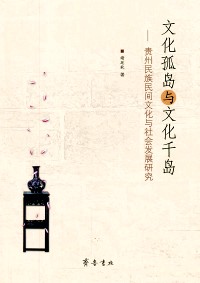 文化孤岛与文化千岛
——贵州民族民间文化与社会发展研究
著
齐鲁书社